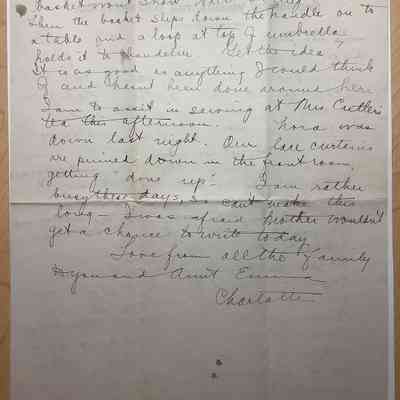 basket won't show
Then the basket slips down the handle on to
a table and a loop at top of umbrella
holds it to chandelier. Get the idea?
It is as good as anything I could think
of and hasn't been done around here.
I am to assist in serving at Mrs. Cutler's
tea this afternoon. Nora was
down last night. Our lace curtains
are pinned down in the front room
getting "done up". I am rather
busy these days, so can't make this
long - I was afraid Mother wouldn't
get a chance to write today
Love from all the family
to you and Aunt Emma
Charlotte